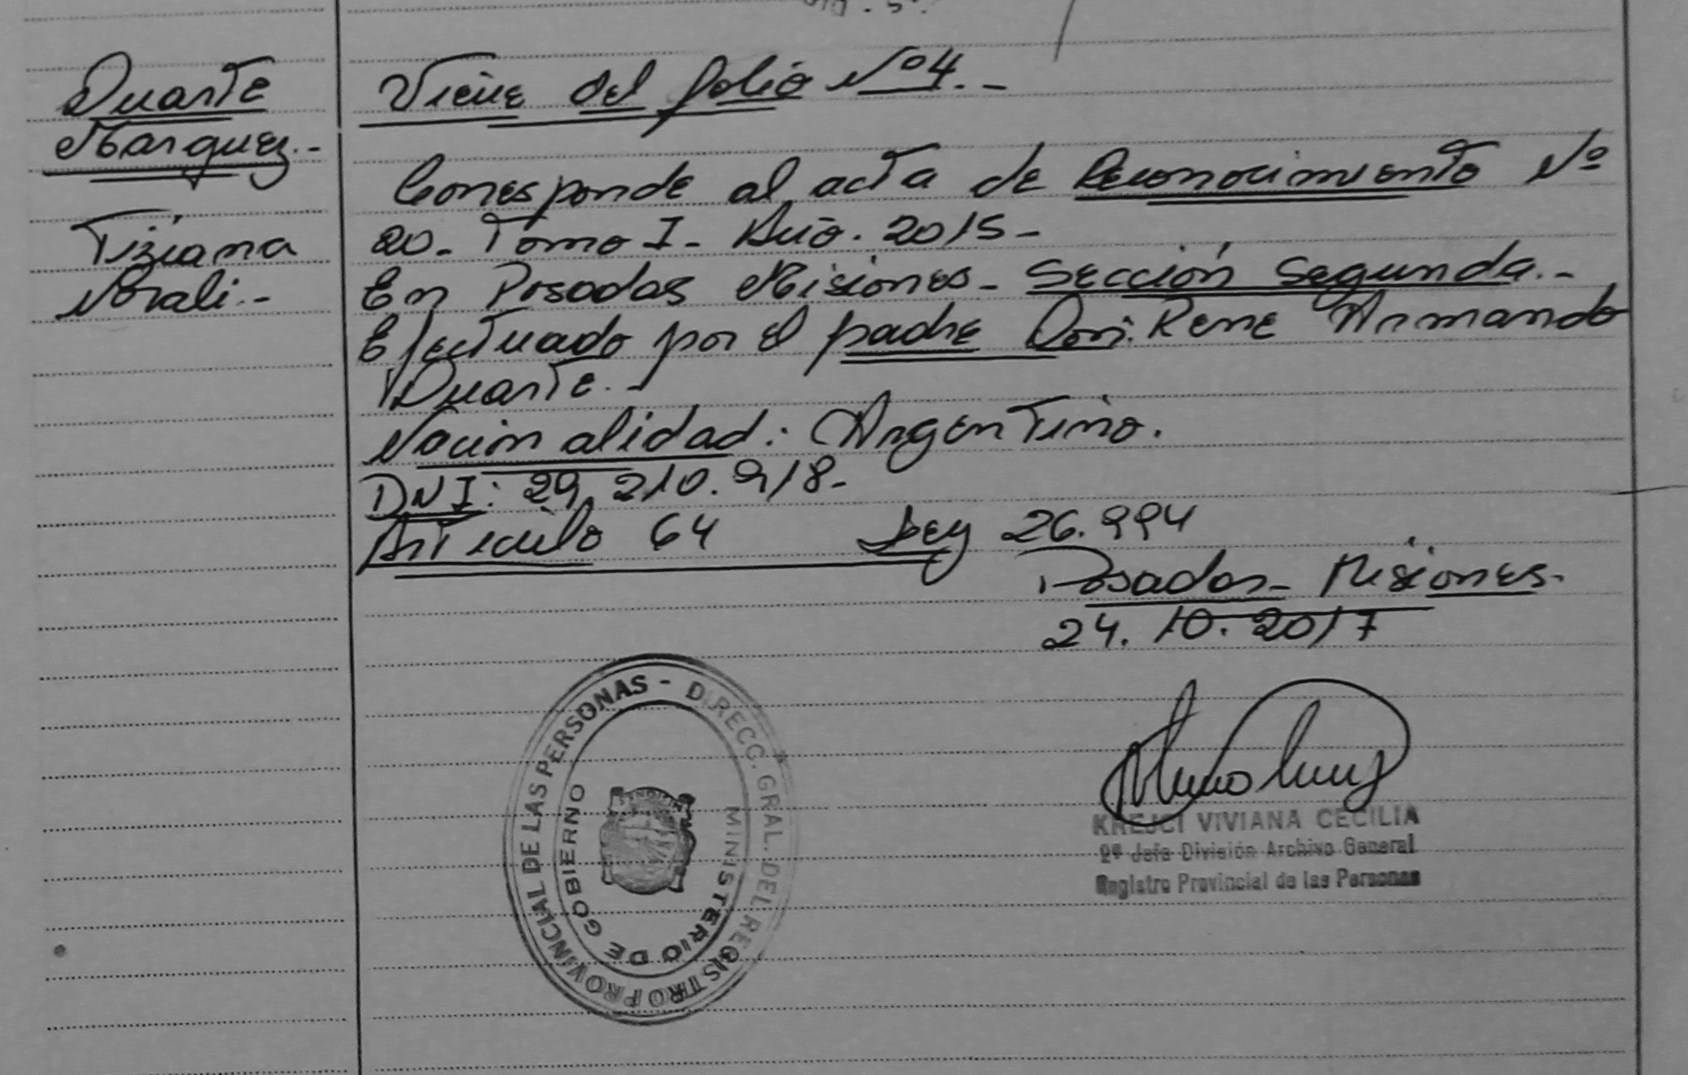 Duarte
Marquez.-
Tiziana
Norali.-
Viene del folio Nº 4.-
Corresponde al acta de Reconocimiento Nº
20. Tomo I- Año. 2015-
En Posadas Misiones- Sección Segunda.-
Efectuado por el padre Don: Rene Armando
Duarte.-
Nacionalidad: Argentino.
DNI: 29.210.918-
Articulo 64 Ley 26.994
Posadas- Misiones-
24.10.2017
KREJCI VIVIANA CECILIA
2º Jefe División Archivo General
Registro Provincial de las Personas
DIRECC. GRAL. DEL REGISTRO PROVINCIAL DE LAS PERSONAS -
MINISTERIO DE GOBIERNO